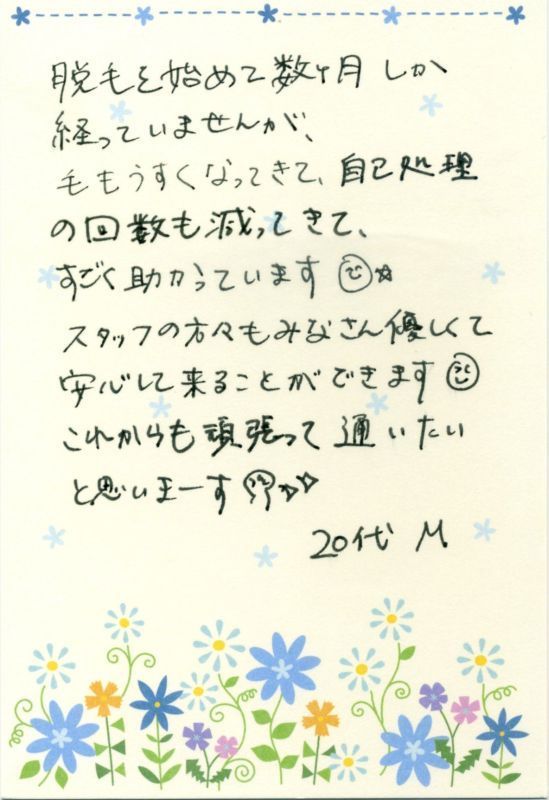 脱毛を始めて数ヶ月しか
経っていませんが、
毛もうすくなってきて、自己処理
の回数も減ってきて、
すごく助かっています☺☆
スタッフの方々もみなさん優しくて
安心して来ることができます☺
これからも頑張って通いたい
と思いまーす☺☆☆
20代 M